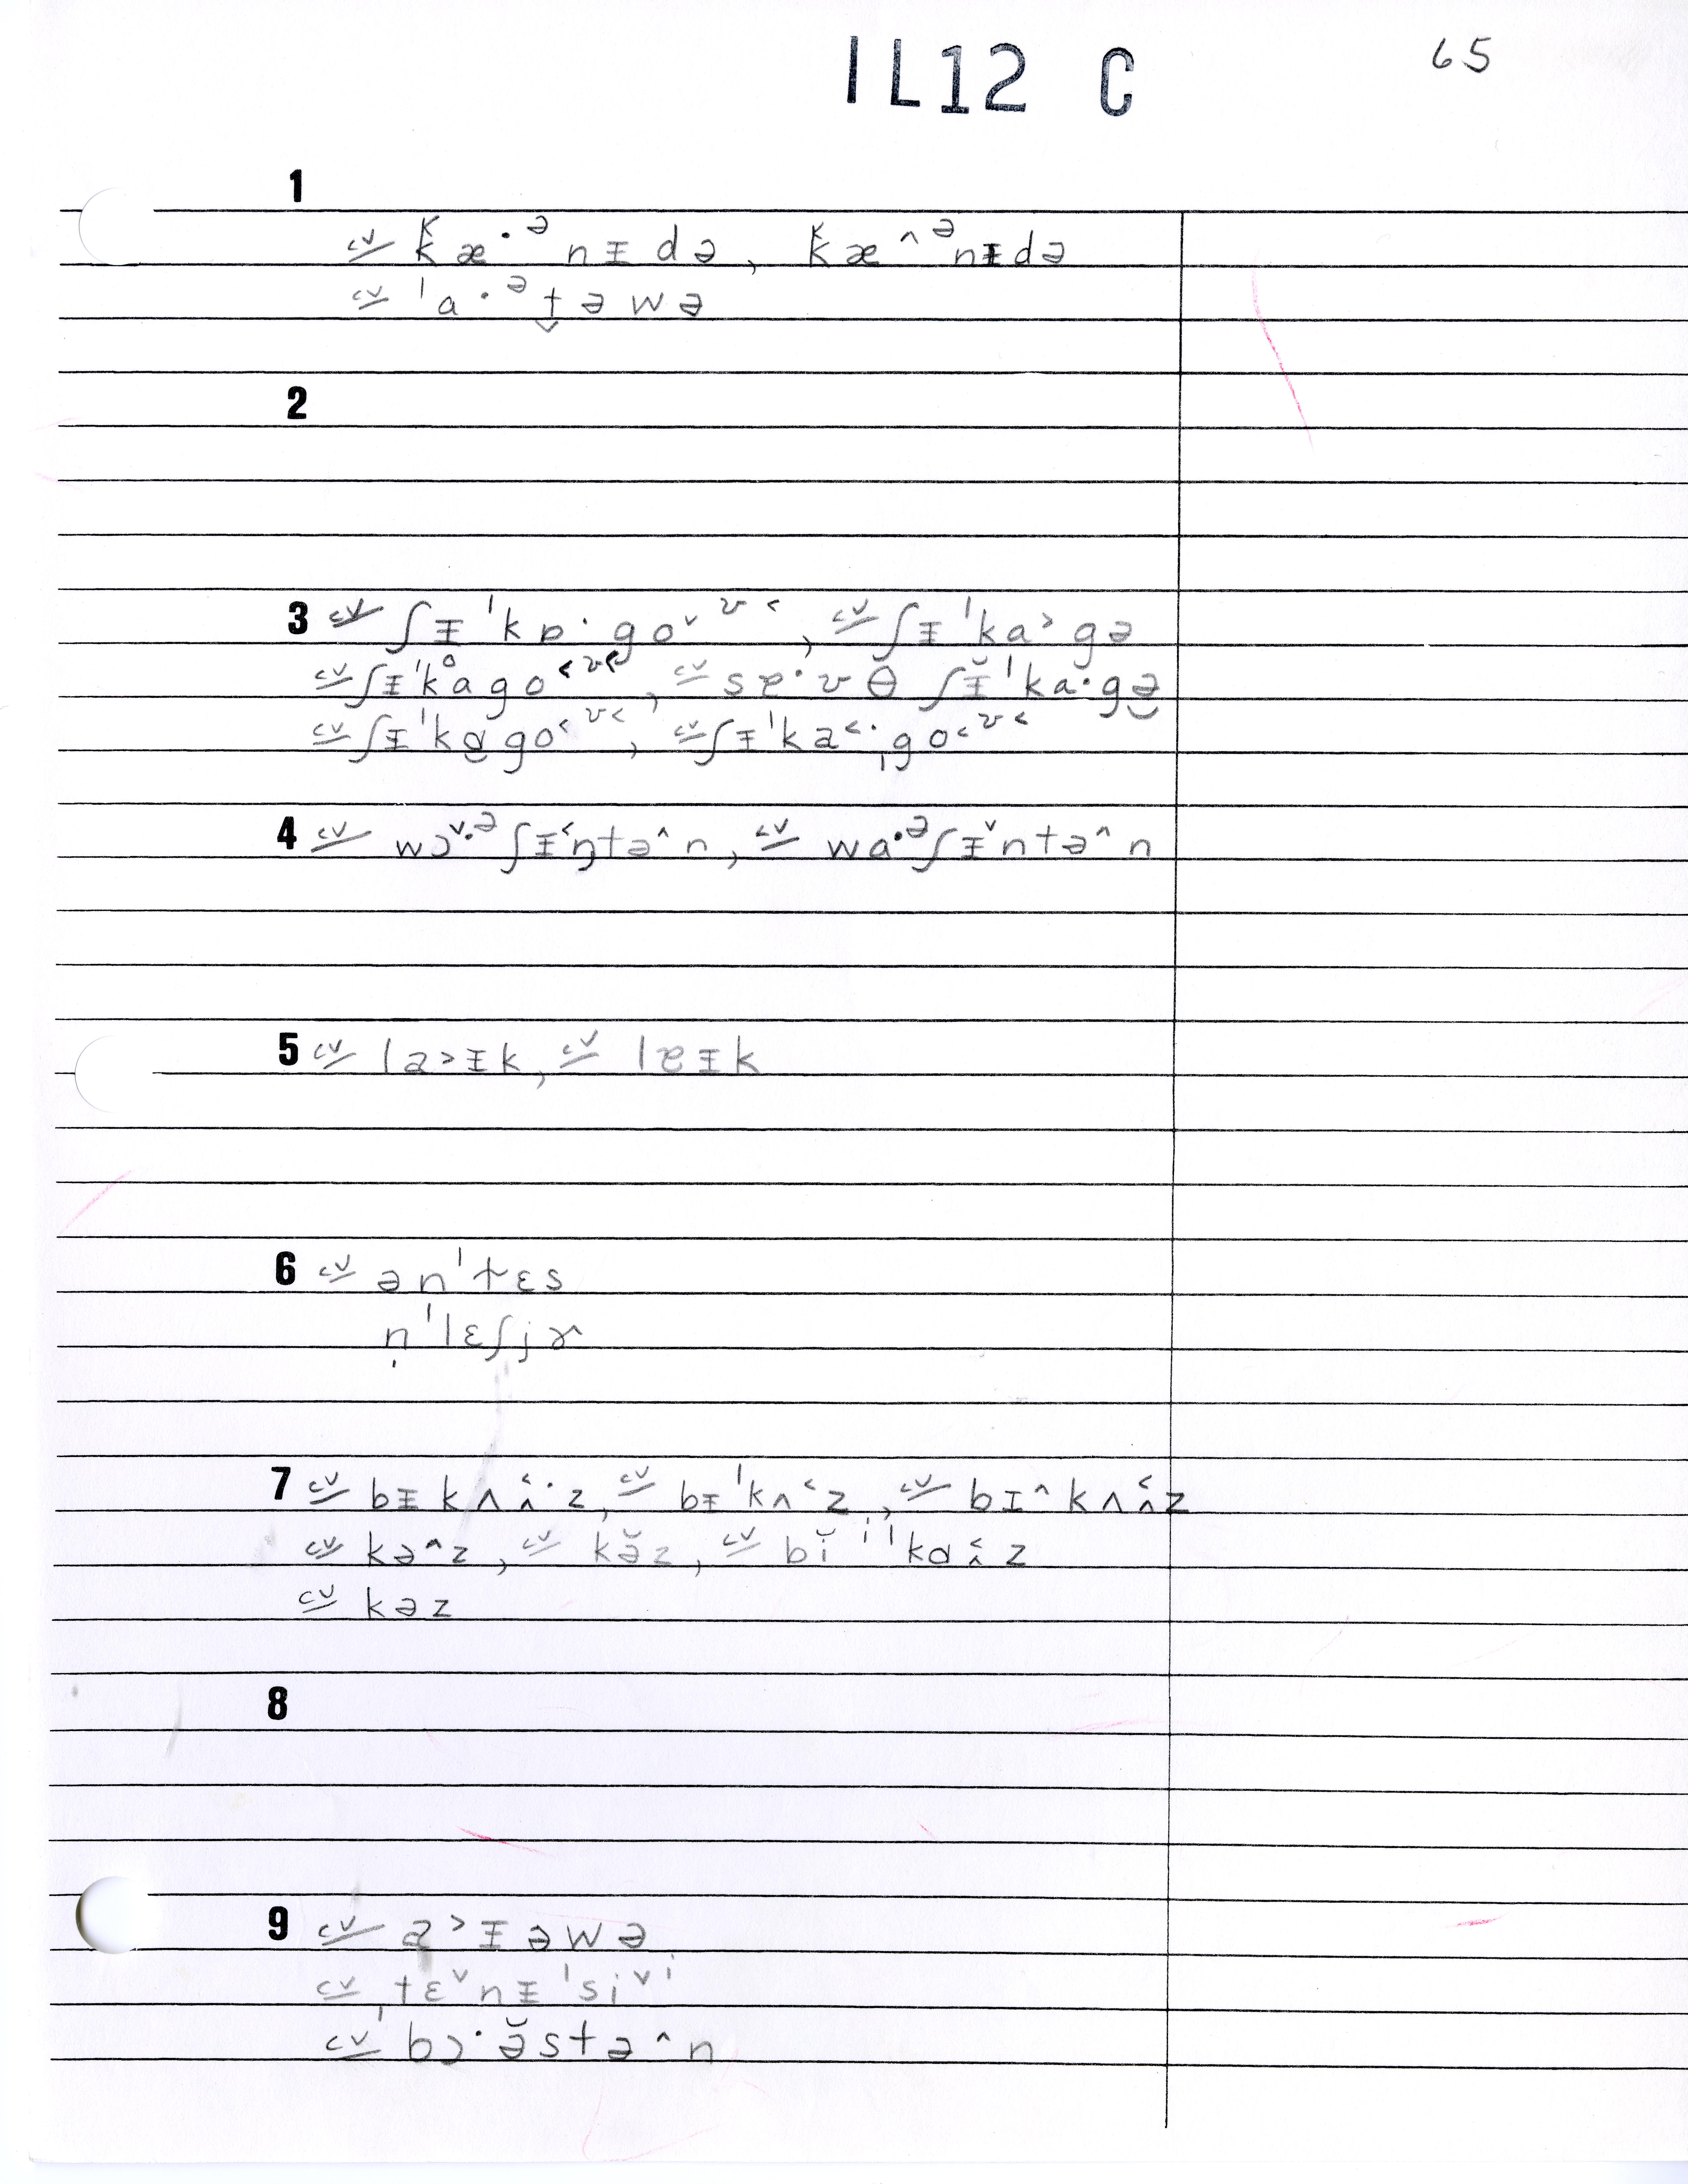 IL12 C 65
1
cv k̆æ·ᵊnᵻdə, k̆æ^ᵊnᵻdə
cv ˈa·ᵊt̬əwə
2
3 cv ʃᵻˈkɒ·goˇᶹ˂, cv ʃᵻˈka˃gə
cv ʃᵻˈkågo˂ᶹ˂, cv sɐ·ʋθ ʃᵻ̆ˈka·gə
cv ʃᵻˈkɑgo˂ᶹ˂, cv ʃᵻˈka˂·ˌgo˂ᶹ˂
4 cv wɔˇ·ᵊʃᵻ˂ŋtə^n, cv wa·ᵊʃᵻˇntə^n
5 cv la˃ᵻk, cv lɐᵻk
6 cv ənˈtɛs
n̩ˈlɛʃjɚ
7 cv bᵻkʌʌ̂˂·z, cv bᵻˈkʌ˂z, cv bɪ^kʌʌ̂˂z
cv kə^z, cv kə̆z, cv bĭⁱˈkɑʌ̂˂z
cv kəz
8
9 cv a˃ᵻəwə
cv ˌtɛˇnᵻˈsiˇⁱ
cv bɔ·ə̆stə^n